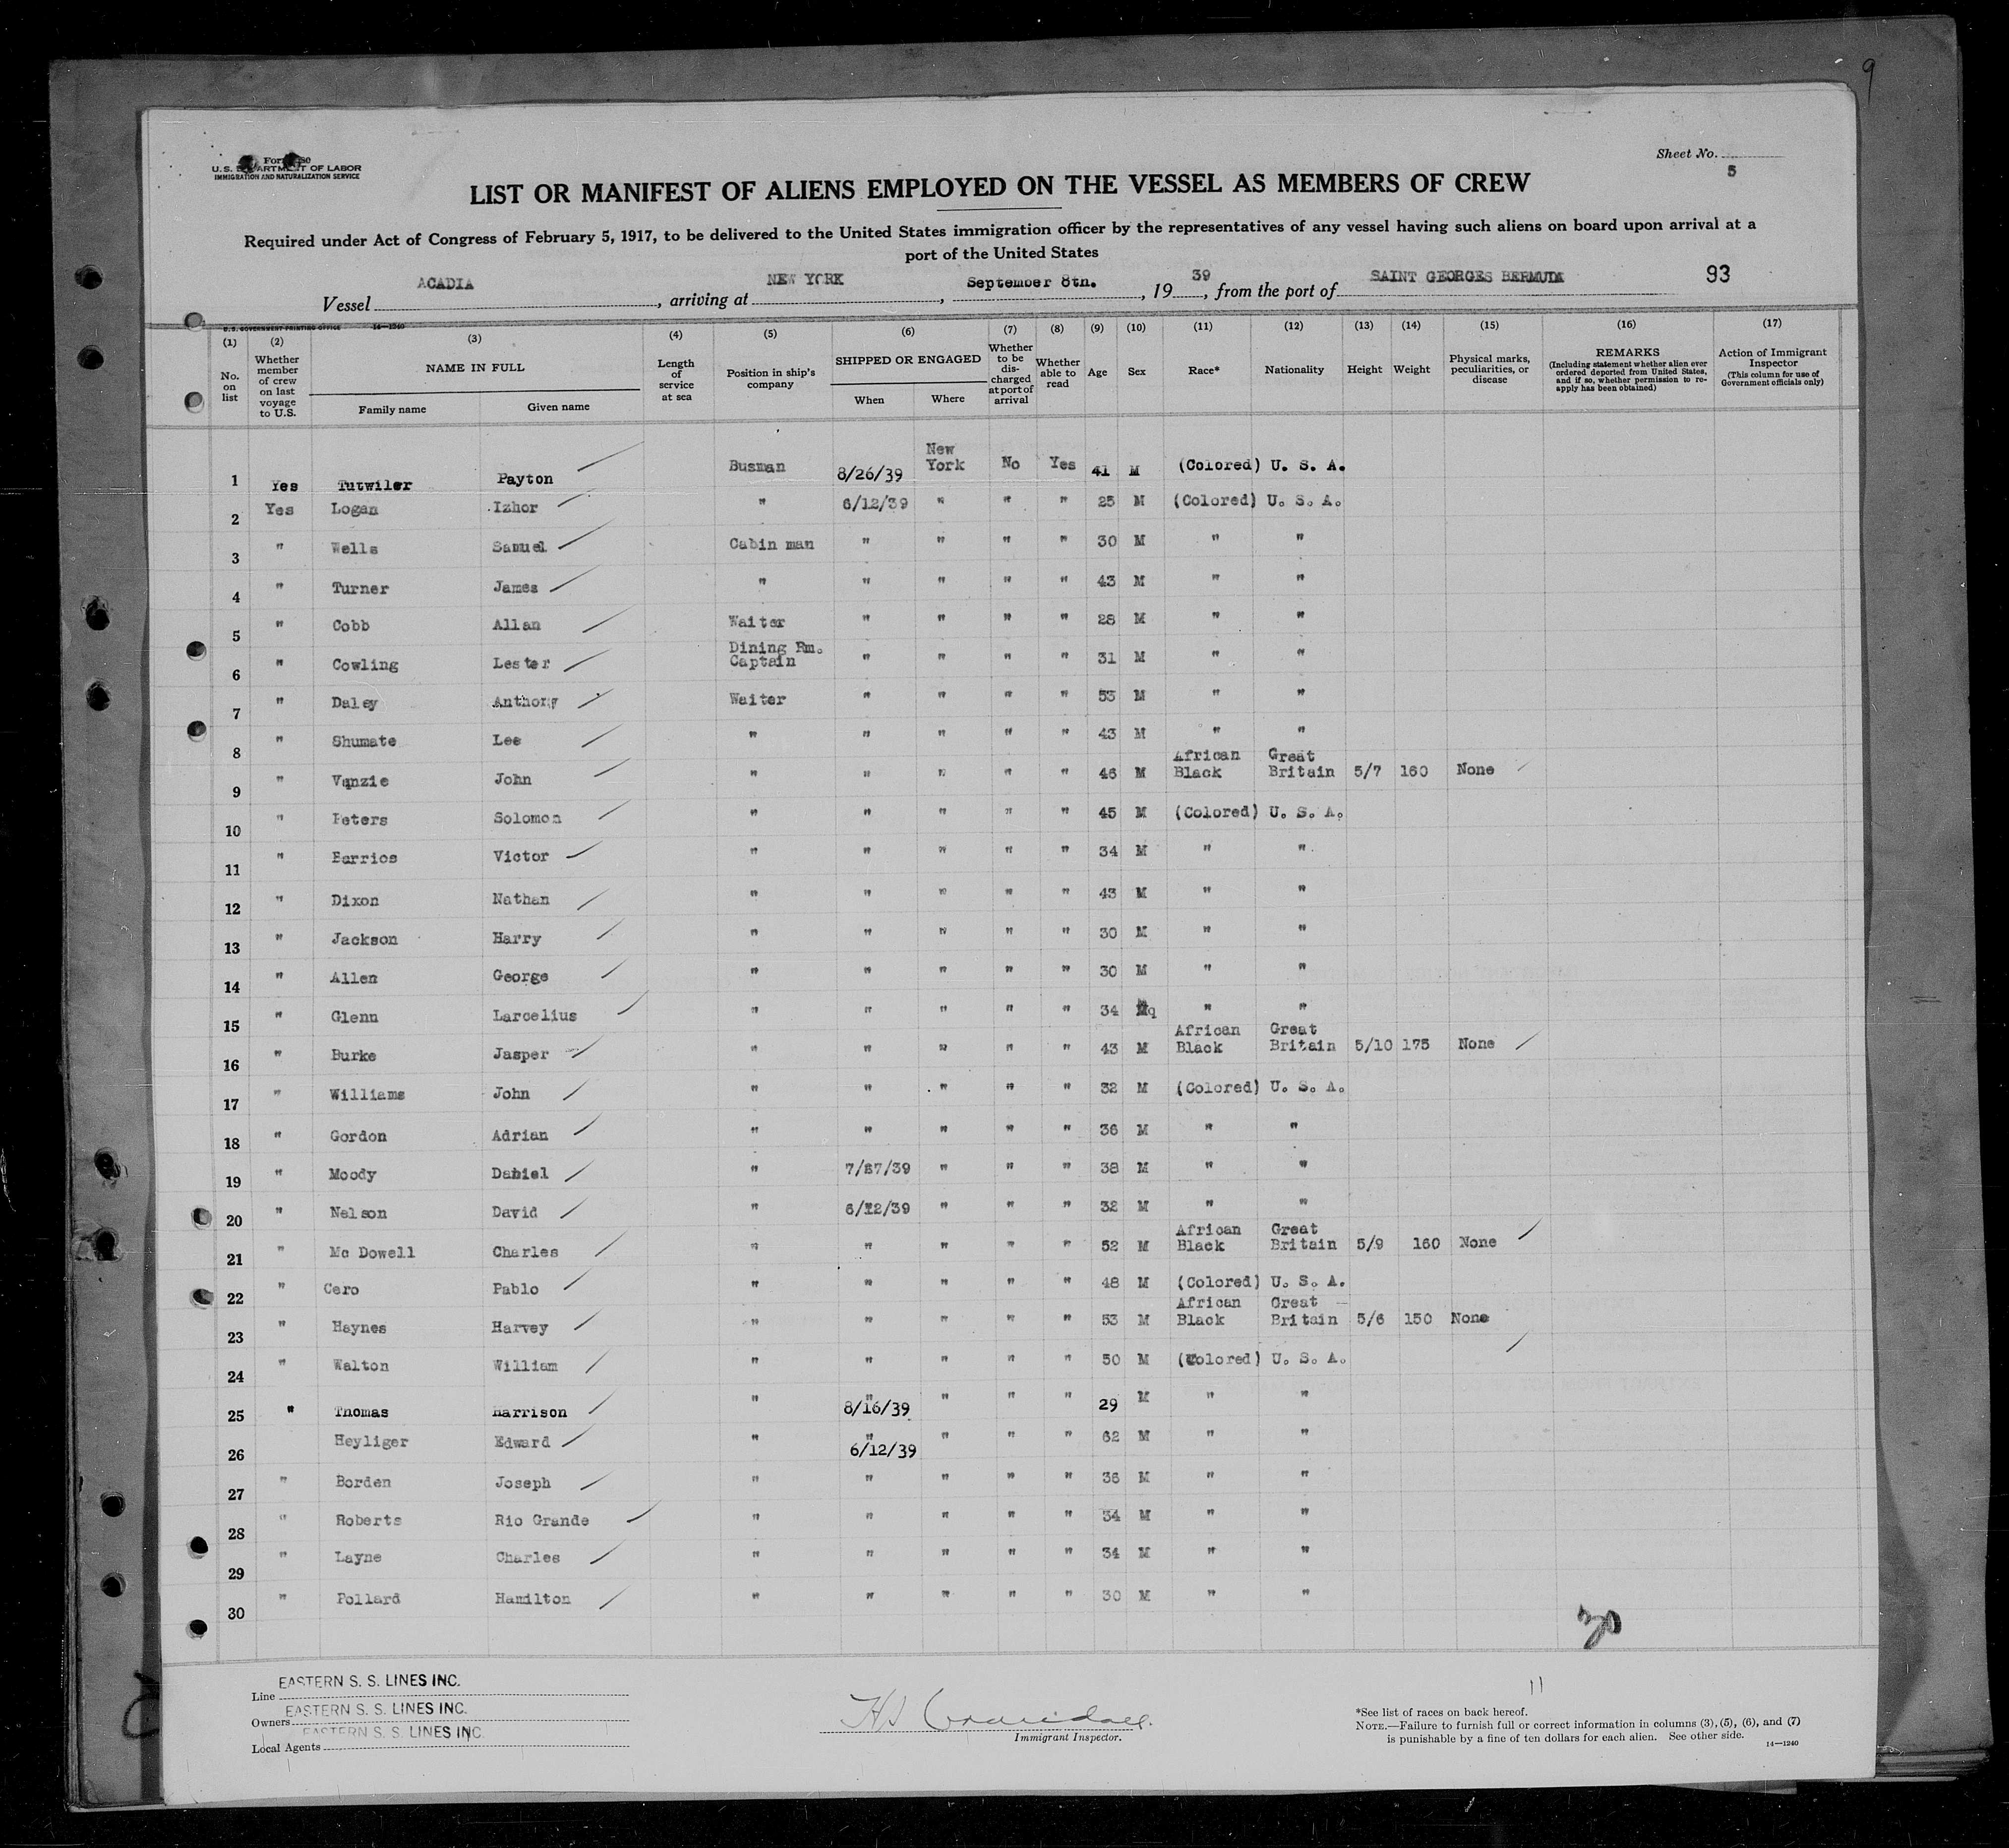 9
Form 680
U.S. DEPARTMENT OF LABOR
IMMIGRATION AND NATURALIZATION SERVICE
Sheet No.
5
LIST OR MANIFEST OF ALIENS EMPLOYED ON THE VESSEL AS MEMBERS OF CREW
Required under Act of Congress of February 5, 1917, to be delivered to the United States immigration officer by the representatives of any vessel having such aliens on board upon arrival at a
port of the United States
Vessel ACADIA, arriving at NEW YORK, September 8th., 1939, from the port of SAINT GEORGES BERMUDA 93
U.S. GOVERNMENT PRINTING OFFICE 14—1240
(1) (2) (3) (4) (5) (6) (7) (8) (9) (10) (11) (12) (13) (14) (15) (16) (17)
No. on list
Whether member of crew on last voyage to U.S.
NAME IN FULL
Family name Given name
Length of service at sea
Position in ship's company
SHIPPED OR ENGAGED
When Where
Whether to be discharged at port of arrival
Whether able to read
Age Sex Race* Nationality Height Weight
Physical marks, peculiarities, or disease
REMARKS
(Including statement whether alien ever ordered deported from United States, and if so, whether permission to reapply has been obtained)
Action of Immigrant Inspector
(This column for use of Government officials only)
1 Yes Tutwiler Payton Busman 8/26/39 New York No Yes 41 M (Colored) U. S. A.
2 Yes Logan Izhor " 6/12/39 " " " 25 M (Colored) U. S. A.
3 " Wells Samuel Cabin man " " " " 30 M " "
4 " Turner James " " " " " 43 M " "
5 " Cobb Allan Waiter " " " " 28 M " "
6 " Cowling Lester Dining Rm. Captain " " " " 31 M " "
7 " Daley Anthony Waiter " " " " 53 M " "
8 " Shumate Lee " " " " " 43 M " "
9 " Vanzie John " " " " " 46 M African Black Great Britain 5/7 160 None
10 " Peters Solomon " " " " " 45 M (Colored) U. S. A.
11 " Barrios Victor " " " " " 34 M " "
12 " Dixon Nathan " " " " " 43 M " "
13 " Jackson Harry " " " " " 30 M " "
14 " Allen George " " " " " 30 M " "
15 " Glenn Larcelius " " " " " 34 M " "
16 " Burke Jasper " " " " " 43 M African Black Great Britain 5/10 175 None
17 " Williams John " " " " " 32 M (Colored) U. S. A.
18 " Gordon Adrian " " " " " 36 M " "
19 " Moody Daniel " 7/27/39 " " " 38 M " "
20 " Nelson David " 6/12/39 " " " 32 M " "
21 " Mc Dowell Charles " " " " " 52 M African Black Great Britain 5/9 160 None
22 " Cero Pablo " " " " " 48 M (Colored) U. S. A.
23 " Haynes Harvey " " " " " 53 M African Black Great Britain 5/6 150 None
24 " Walton William " " " " " 50 M (Colored) U. S. A.
25 " Thomas Harrison " " 8/16/39 " " " 29 M " "
26 Heyliger Edward " " 6/12/39 " " " 62 M " "
27 " Borden Joseph " " " " " 36 M " "
28 " Roberts Rio Grande " " " " " 34 M " "
29 " Layne Charles " " " " " 34 M " "
30 " Pollard Hamilton " " " " " 30 M " "
Line EASTERN S. S. LINES INC.
Owners EASTERN S. S. LINES INC.
Local Agents EASTERN S. S. LINES INC.
Immigrant Inspector.
11
*See list of races on back hereof.
NOTE.—Failure to furnish full or correct information in columns (3), (5), (6), and (7)
is punishable by a fine of ten dollars for each alien. See other side.
14—1240